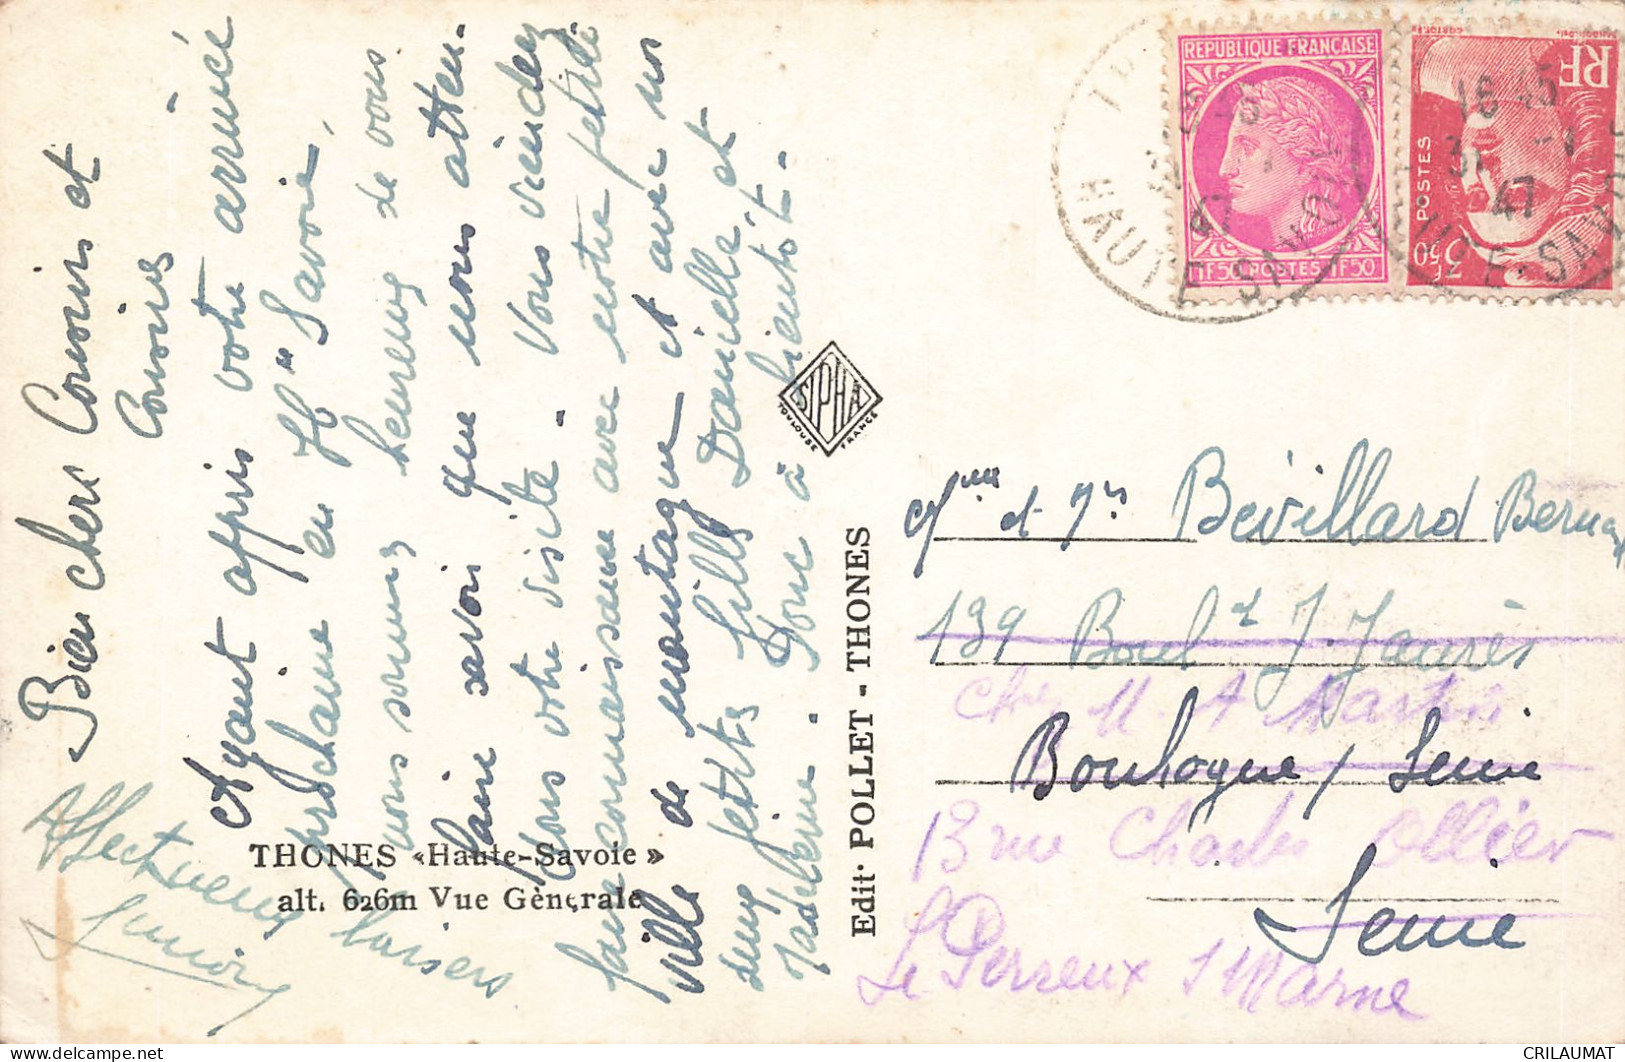 Bien chers Cousins et
Cousines
Ayant appris votre arrivée
prochaine en Hte Savoie,
nous sommes heureux de vous
faire savoir que nous atten-
dons votre visite - Vous viendrez
faire connaissance avec notre petite
ville de montagne et avec nos
deux petites filles Danielle et
Madeleine. Donc à bientôt -
Affectueux baisers
THONES «Haute-Savoie»
alt. 626m Vue Gènèrale
Edit. POLLET - THONES
SIPHA
TOULOUSE FRANCE
REPUBLIQUE FRANÇAISE
1F50 POSTES 1F50
RF
POSTES
3F50
HAUTE-SAVOIE
16 45
31 -1
47
HAUTE-SAVOIE
Mme et Mr Bévillard
139 Boul d J. Jaurès
Chez M. A Martin
Boulogne / Seine
13 rue Charles Ollier
Seine
Le Perreux s/ Marne
CRILAUMAT